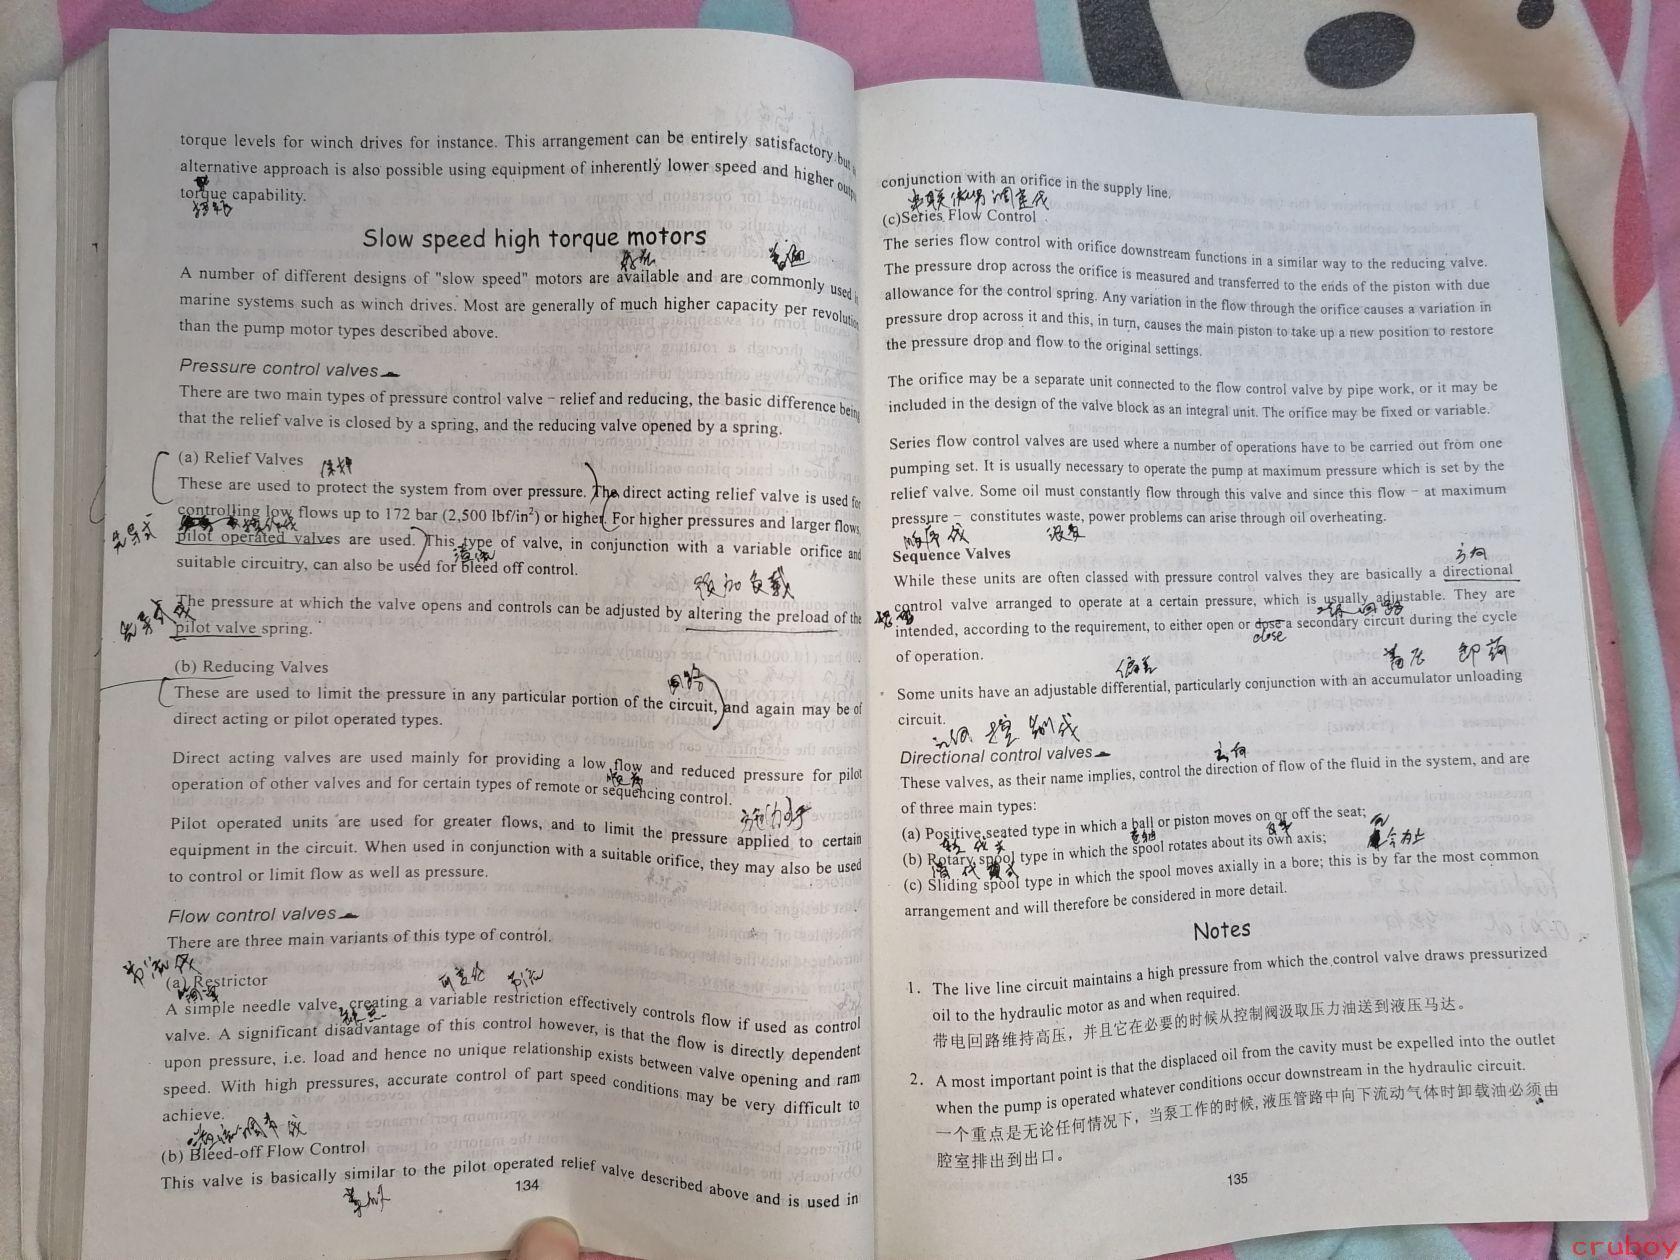 torque levels for winch drives for instance. This arrangement can be entirely satisfactory but
alternative approach is also possible using equipment of inherently lower speed and higher
torque capability.
Slow speed high torque motors
A number of different designs of "slow speed" motors are available and are commonly used
普遍
marine systems such as winch drives. Most are generally of much higher capacity per revolution
than the pump motor types described above.
Pressure control valves
There are two main types of pressure control valve - relief and reducing, the basic difference being
that the relief valve is closed by a spring, and the reducing valve opened by a spring.
(a) Relief Valves
保护
These are used to protect the system from over pressure. The direct acting relief valve is used for
controlling low flows up to 172 bar (2,500 lbf/in²) or higher. For higher pressures and larger flows,
先导式
pilot operated valves are used. This type of valve, in conjunction with a variable orifice and
suitable circuitry, can also be used for bleed off control.
预加负载
The pressure at which the valve opens and controls can be adjusted by altering the preload of the
先导式阀
pilot valve spring.
(b) Reducing Valves
回路
These are used to limit the pressure in any particular portion of the circuit, and again may be of
direct acting or pilot operated types.
Direct acting valves are used mainly for providing a low flow and reduced pressure for pilot
operation of other valves and for certain types of remote or sequencing control.
施加于
Pilot operated units are used for greater flows, and to limit the pressure applied to certain
equipment in the circuit. When used in conjunction with a suitable orifice, they may also be used
to control or limit flow as well as pressure.
Flow control valves
There are three main variants of this type of control.
节流阀
(a) Restrictor
可变化 节流
A simple needle valve, creating a variable restriction effectively controls flow if used as control
valve. A significant disadvantage of this control however, is that the flow is directly dependent
upon pressure, i.e. load and hence no unique relationship exists between valve opening and ram
speed. With high pressures, accurate control of part speed conditions may be very difficult to
achieve.
(b) Bleed-off Flow Control
This valve is basically similar to the pilot operated relief valve described above and is used in
134
conjunction with an orifice in the supply line.
(c)Series Flow Control
The series flow control with orifice downstream functions in a similar way to the reducing valve.
The pressure drop across the orifice is measured and transferred to the ends of the piston with due
allowance for the control spring. Any variation in the flow through the orifice causes a variation in
pressure drop across it and this, in turn, causes the main piston to take up a new position to restore
the pressure drop and flow to the original settings.
The orifice may be a separate unit connected to the flow control valve by pipe work, or it may be
included in the design of the valve block as an integral unit. The orifice may be fixed or variable.
Series flow control valves are used where a number of operations have to be carried out from one
pumping set. It is usually necessary to operate the pump at maximum pressure which is set by the
relief valve. Some oil must constantly flow through this valve and since this flow - at maximum
pressure - constitutes waste, power problems can arise through oil overheating.
顺序阀
Sequence Valves
方向
While these units are often classed with pressure control valves they are basically a directional
control valve arranged to operate at a certain pressure, which is usually adjustable. They are
二级回路
intended, according to the requirement, to either open or dose a secondary circuit during the cycle
close
of operation.
偏差 蓄压 卸荷
Some units have an adjustable differential, particularly conjunction with an accumulator unloading
circuit.
方向控制阀
Directional control valves
方向
These valves, as their name implies, control the direction of flow of the fluid in the system, and are
of three main types:
(a) Positive seated type in which a ball or piston moves on or off the seat;
(b) Rotary spool type in which the spool rotates about its own axis;
(c) Sliding spool type in which the spool moves axially in a bore; this is by far the most common
arrangement and will therefore be considered in more detail.
Notes
1. The live line circuit maintains a high pressure from which the control valve draws pressurized
oil to the hydraulic motor as and when required.
带电回路维持高压，并且它在必要的时候从控制阀汲取压力油送到液压马达。
2. A most important point is that the displaced oil from the cavity must be expelled into the outlet
when the pump is operated whatever conditions occur downstream in the hydraulic circuit.
一个重点是无论任何情况下，当泵工作的时候,液压管路中向下流动气体时卸载油必须由
腔室排出到出口。
135
cruboy